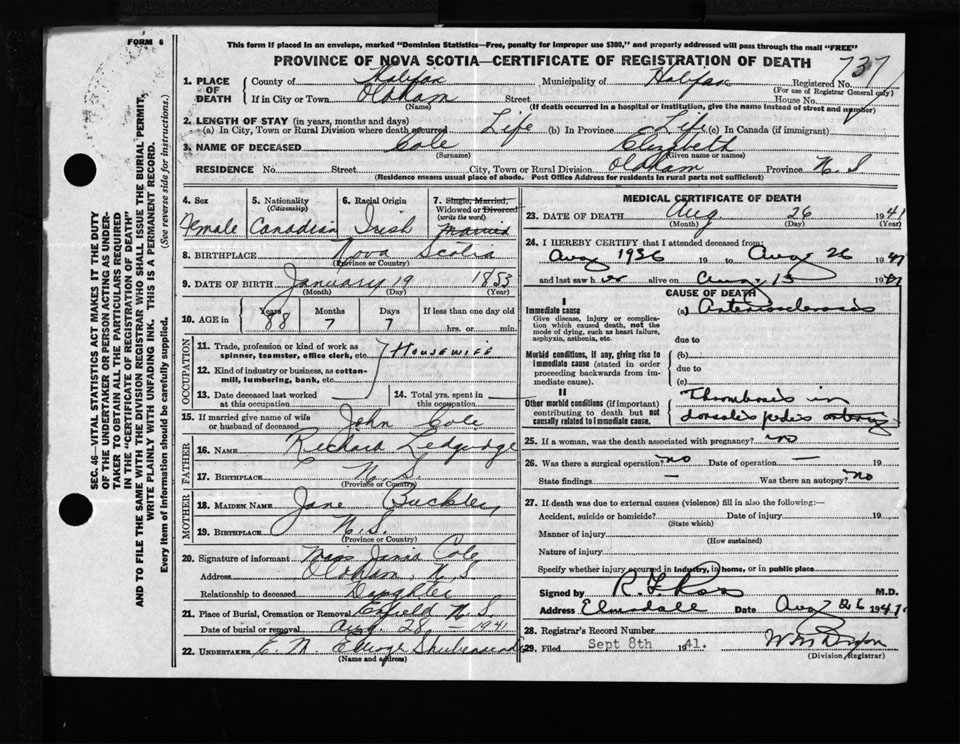 FORM 6
This form if placed in an envelope, marked "Dominion Statistics—Free, penalty for improper use $300," and properly addressed will pass through the mail "FREE"
PROVINCE OF NOVA SCOTIA—CERTIFICATE OF REGISTRATION OF DEATH
1. PLACE OF DEATH
County of Halifax Municipality of Halifax Registered No. 737
(For use of Registrar General only)
If in City or Town Oldham Street House No.
(Name) (If death occurred in a hospital or institution, give the name instead of street and number)
2. LENGTH OF STAY (in years, months and days)
(a) In City, Town or Rural Division where death occurred Life (b) In Province Life (c) In Canada (if immigrant)
3. NAME OF DECEASED Cole Elizabeth
(Surname) (Given name or names)
RESIDENCE No. Street City, Town or Rural Division Oldham Province N.S
(Residence means usual place of abode. Post Office Address for residents in rural parts not sufficient)
4. Sex 5. Nationality (Citizenship) 6. Racial Origin 7. Single, Married, Widowed or Divorced (write the word)
Female Canadian Irish Married
8. BIRTHPLACE Nova Scotia
(Province or Country)
9. DATE OF BIRTH January 19 1853
(Month) (Day) (Year)
10. AGE in Years Months Days If less than one day old
88 7 7 hrs. or min.
OCCUPATION
11. Trade, profession or kind of work as spinner, teamster, office clerk, etc. Housewife
12. Kind of industry or business, as cotton-mill, lumbering, bank, etc.
13. Date deceased last worked at this occupation 14. Total yrs. spent in this occupation
15. If married give name of wife or husband of deceased John Cole
FATHER
16. NAME Richard
17. BIRTHPLACE N.S.
(Province or Country)
MOTHER
18. MAIDEN NAME Jane Buckley
19. BIRTHPLACE N.S.
(Province or Country)
20. Signature of informant Cole
Address Oldham, N.S.
Relationship to deceased Daughter
21. Place of Burial, Cremation or Removal Enfield N.S.
Date of burial or removal Aug. 28 - 1941
22. UNDERTAKER E. M.
(Name and address)
MEDICAL CERTIFICATE OF DEATH
23. DATE OF DEATH Aug 26 1941
(Month) (Day) (Year)
24. I HEREBY CERTIFY that I attended deceased from:
Aug 1936 19 to Aug 26 1941
and last saw h er alive on Aug 13 1941
CAUSE OF DEATH
I
Immediate cause
Give disease, injury or complication which caused death, not the mode of dying, such as heart failure, asphyxia, asthenia, etc.
(a) Arteriosclerosis
due to
Morbid conditions, if any, giving rise to immediate cause (stated in order proceeding backwards from immediate cause).
(b)
due to
(c)
II
Other morbid conditions (if important) contributing to death but not causally related to immediate cause.
Thrombosis in
dorsalis pedis artery
25. If a woman, was the death associated with pregnancy? no
26. Was there a surgical operation? no Date of operation — 19
State findings — Was there an autopsy? no
27. If death was due to external causes (violence) fill in also the following:—
Accident, suicide or homicide? Date of injury 19
(State which)
Manner of injury
(How sustained)
Nature of injury
Specify whether injury occurred in industry, in home, or in public place
Signed by R. F. Ross M.D.
Address Elmsdale Date Aug 26 1941
28. Registrar's Record Number
29. Filed Sept 8th 1941.
(Division Registrar)
SEC. 46—VITAL STATISTICS ACT MAKES IT THE DUTY
OF THE UNDERTAKER OR PERSON ACTING AS UNDERTAKER TO OBTAIN ALL THE PARTICULARS REQUIRED
IN THE "CERTIFICATE OF REGISTRATION OF DEATH"
AND TO FILE THE SAME WITH THE DIVISION REGISTRAR WHO SHALL ISSUE THE BURIAL PERMIT.
WRITE PLAINLY WITH UNFADING INK. THIS IS A PERMANENT RECORD.
Every item of information should be carefully supplied. (See reverse side for instructions.)